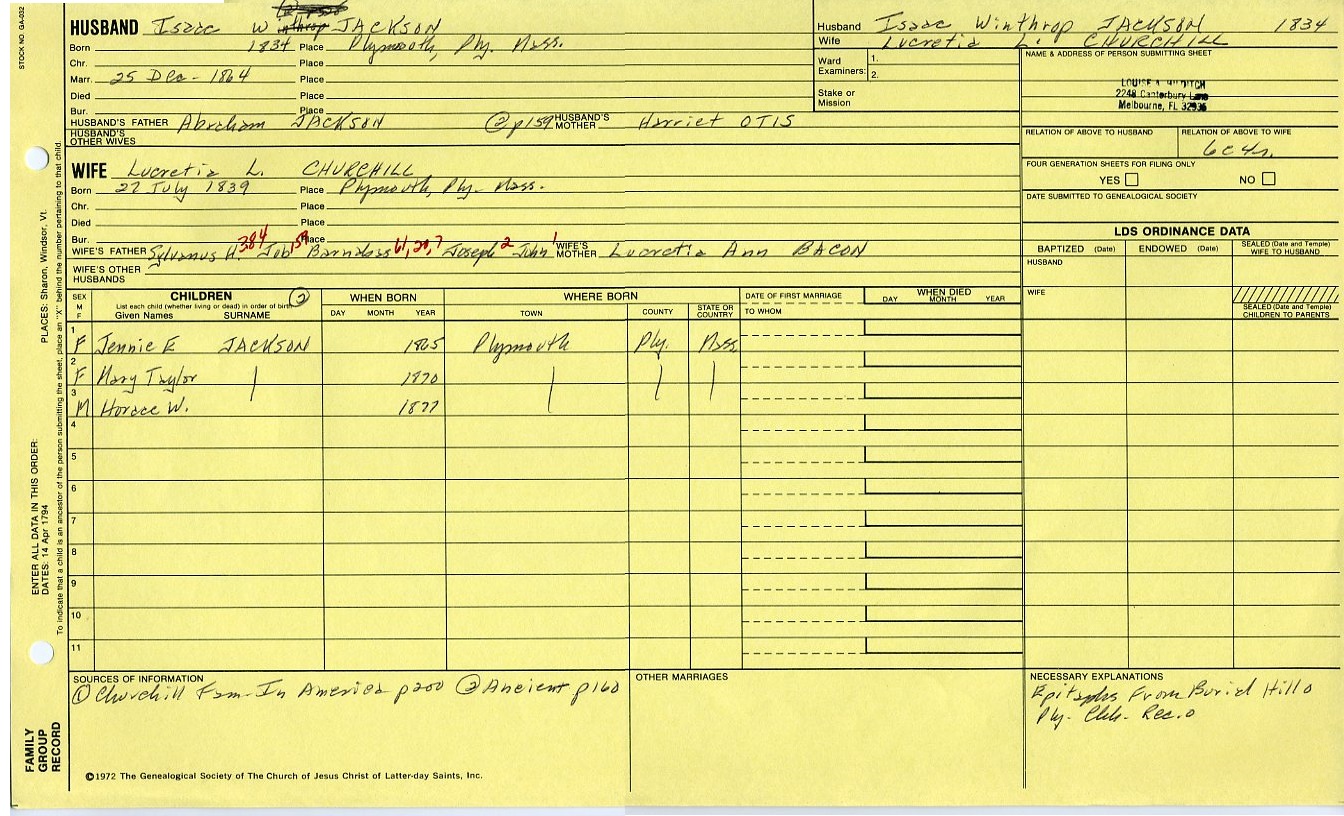 STOCK NO. GA-032
HUSBAND Isaac W inthrop JACKSON
Born 1834 Place Plymouth, Ply. Mass.
Chr. Place
Marr. 25 Dec - 1864 Place
Died Place
Bur. Place
HUSBAND'S FATHER Abraham JACKSON ② p159 HUSBAND'S MOTHER Harriet OTIS
HUSBAND'S OTHER WIVES
Husband Isaac Winthrop JACKSON 1834
Wife Lucretia L. CHURCHILL
Ward Examiners: 1.
2.
Stake or Mission
NAME & ADDRESS OF PERSON SUBMITTING SHEET
2248 Canterbury Lane
Melbourne, FL 32935
RELATION OF ABOVE TO HUSBAND RELATION OF ABOVE TO WIFE
6c4r.
FOUR GENERATION SHEETS FOR FILING ONLY
YES NO
DATE SUBMITTED TO GENEALOGICAL SOCIETY
WIFE Lucretia L. CHURCHILL
Born 27 July 1839 Place Plymouth, Ply- Mass.
Chr. Place
Died Place
Bur. Place
WIFE'S FATHER Sylvanus H. 384 Job 159 Barnabas 61,20,7 Joseph 2 John 1 WIFE'S MOTHER Lucretia Ann BACON
WIFE'S OTHER HUSBANDS
LDS ORDINANCE DATA
BAPTIZED (Date) ENDOWED (Date) SEALED (Date and Temple) WIFE TO HUSBAND
HUSBAND
WIFE
SEALED (Date and Temple) CHILDREN TO PARENTS
SEX M F
CHILDREN ②
List each child (whether living or dead) in order of birth
Given Names SURNAME
WHEN BORN
DAY MONTH YEAR
WHERE BORN
TOWN COUNTY STATE OR COUNTRY
DATE OF FIRST MARRIAGE
TO WHOM
WHEN DIED
DAY MONTH YEAR
1 F Jennie E JACKSON 1865 Plymouth Ply. Mass.
2 F Mary Taylor 1870
3 M Horace W. 1877
4
5
6
7
8
9
10
11
SOURCES OF INFORMATION
① Churchill Fam-In America p200 ② Ancient p160
OTHER MARRIAGES
NECESSARY EXPLANATIONS
Epitaphs From Burial Hill o
Ply- Chh- Rec. o
©1972 The Genealogical Society of The Church of Jesus Christ of Latter-day Saints, Inc.
FAMILY GROUP RECORD
ENTER ALL DATA IN THIS ORDER:
DATES: 14 Apr 1794
PLACES: Sharon, Windsor, Vt.
To indicate that a child is an ancestor of the person submitting the sheet, place an "X" behind the number pertaining to that child.